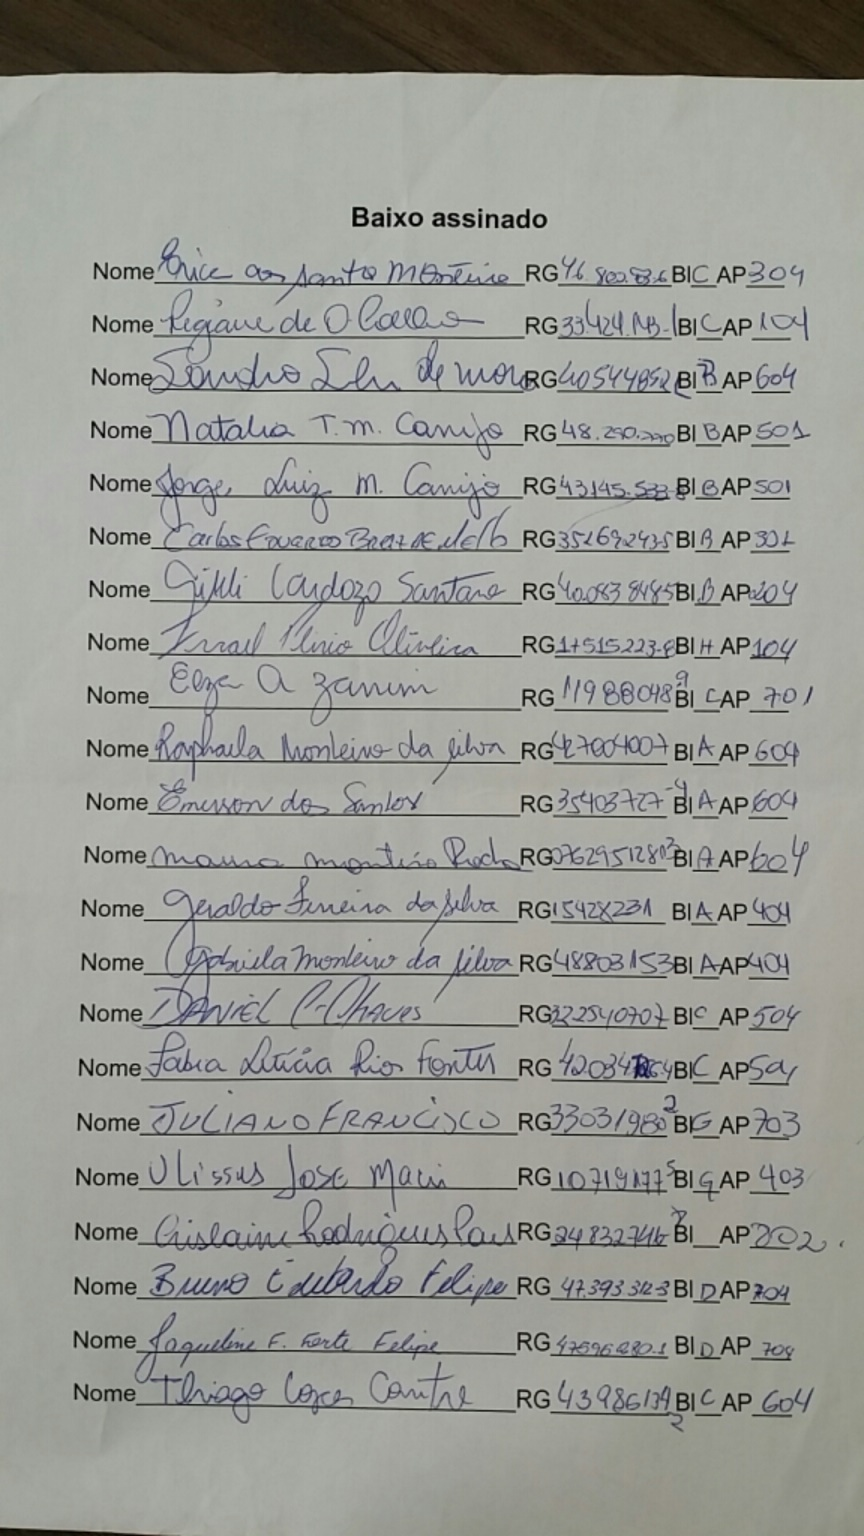 Baixo assinado
Nome Erice dos Santos Monteiro RG Bl C AP 304
Nome Regiane de O Coelho RG Bl C AP 104
Nome Sandro RG 405448526 Bl B AP 604
Nome Natalia T. M. Canijo RG 48.290.290 Bl B AP 501
Nome Jorge Luiz M. Canijo RG 43145.533-8 Bl B AP 501
Nome Carlos Eduardo RG 352692435 Bl B AP 301
Nome Cardozo Santana RG Bl B AP 204
Nome Oliveira RG 17515223-8 Bl H AP 104
Nome Elza A Zanini RG 119880489 Bl C AP 701
Nome Raphaela Monteiro da Silva RG 427004007 Bl A AP 604
Nome Emerson dos Santos RG 35403727-4 Bl A AP 604
Nome Monteiro Rocha RG Bl A AP 604
Nome Geraldo Ferreira da Silva RG 15428231 Bl A AP 404
Nome Gabriela Monteiro da Silva RG 48803153 Bl A AP 404
Nome DANIEL C. Chaves RG 322540707 Bl C AP 504
Nome Fabia Letícia Rios Fontes RG Bl C AP
Nome JULIANO FRANCISCO RG 330319802 Bl G AP 703
Nome Ulisses Jose RG 107191775 Bl G AP 403
Nome Gislaine Rodrigues RG Bl AP 202.
Nome Bruno Eduardo Felipe RG Bl D AP 704
Nome Jaqueline F. Forte Felipe RG Bl D AP 704
Nome Thiago RG 439861392 Bl C AP 604